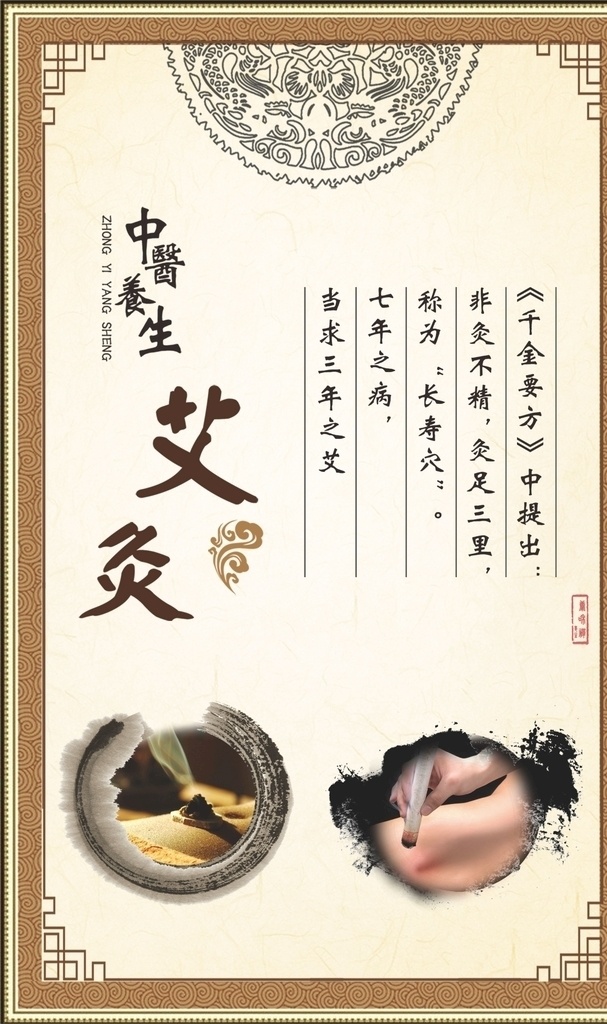 《千金要方》中提出：
非灸不精，灸足三里，
称为“长寿穴”。
七年之病，
当求三年之艾
中醫養生
ZHONG YI YANG SHENG
艾灸